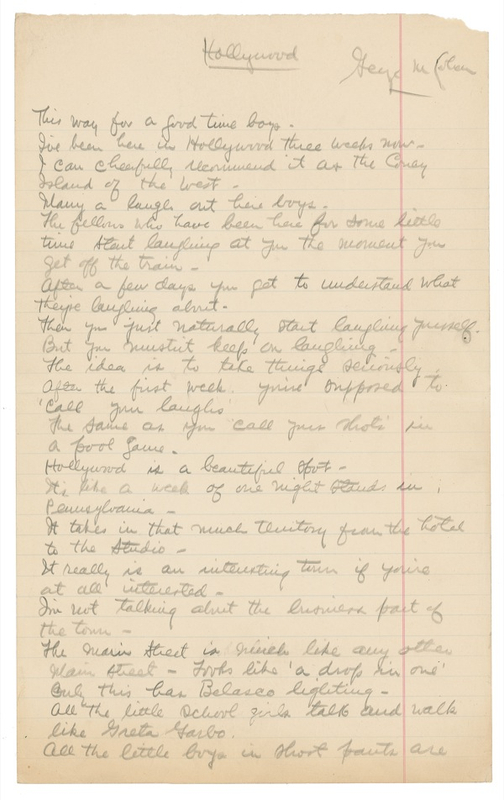 Hollywood
George M Cohan
This way for a good time boys -
I've been here in Hollywood three weeks now -
I can cheerfully recommend it as the Coney
Island of the West -
Many a laugh out here boys.
The fellows who have been here for some little
time start laughing at you the moment you
get off the train -
After a few days you get to understand what
they're laughing about -
Then you just naturally start laughing yourself.
But you mustn't keep on laughing -
The idea is to take things seriously
After the first week. you're supposed to
'call your laughs'
The same as you 'call your shots' in
a pool game.
Hollywood is a beautiful spot -
It's like a week of one night stands in
Pennsylvania -
It takes in that much territory from the hotel
to the Studio -
It really is an interesting town if you're
at all interested -
I'm not talking about the business part of
the town -
The Main Street is much like any other
Main Street - Looks like 'a drop in one'
Only this has Belasco lighting -
All the little school girls talk and walk
like Greta Garbo.
All the little boys in short pants are